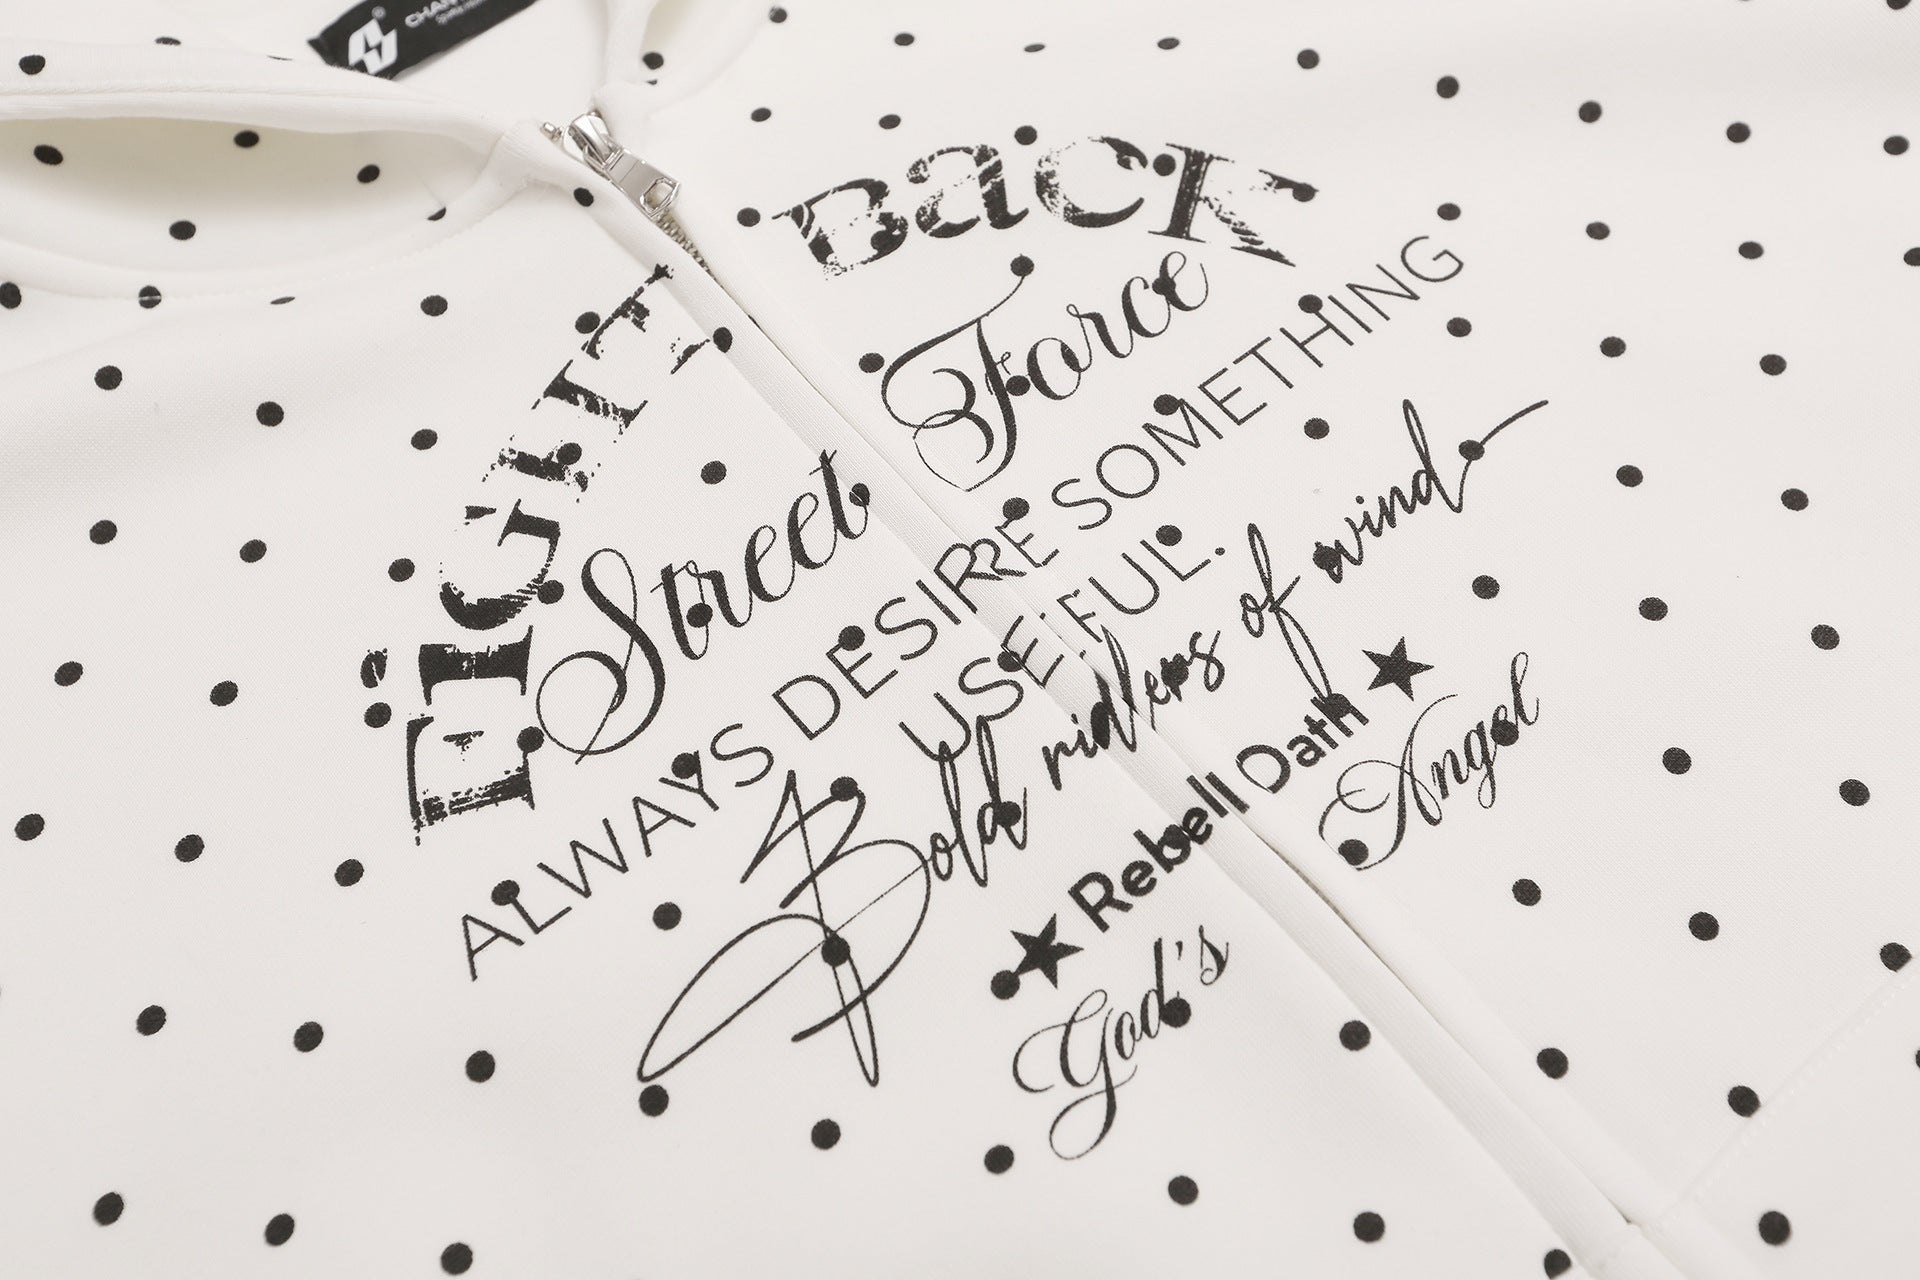 FIGHT BACK
Street Force
ALWAYS DESIRE SOMETHING
USEFUL.
Bold riders of wind
★ Rebell Dath ★
God's Angel